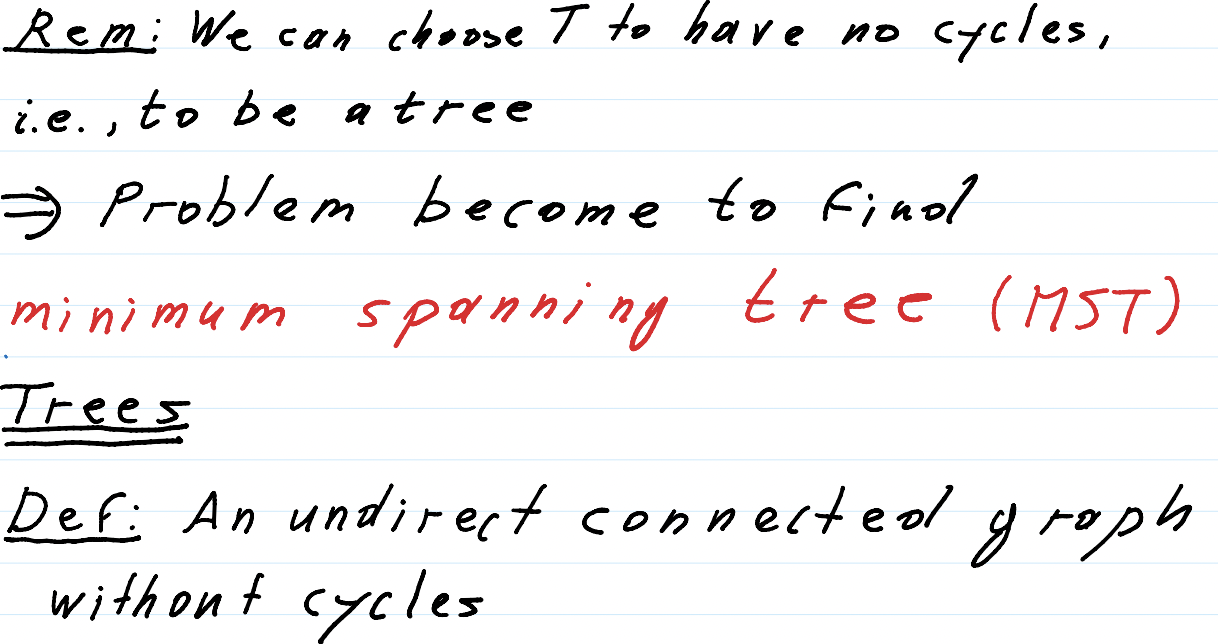 Rem: We can choose T to have no cycles,
i.e., to be a tree
⇒ Problem become to find
minimum spanning tree (MST)
Trees
Def: An undirect connected graph
without cycles